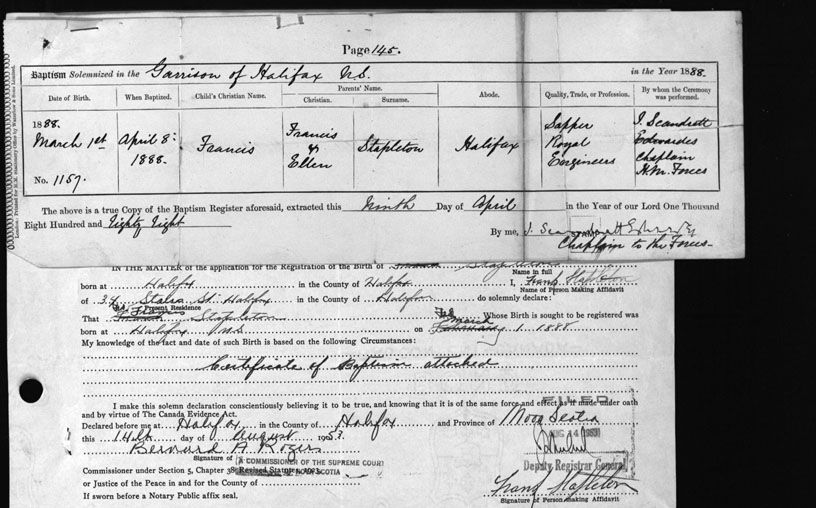 Page 145.
Baptism Solemnized in the Garrison of Halifax N.S. in the Year 1888.
Date of Birth. When Baptized. Child's Christian Name. Parents' Name. Christian. Surname. Abode. Quality, Trade, or Profession. By whom the Ceremony was performed.
1888. March 1st No. 1157. April 8: 1888. Francis Francis & Ellen Stapleton Halifax Sapper Royal Engineers J. Scandrett Edwardes Chaplain H.M. Forces
The above is a true Copy of the Baptism Register aforesaid, extracted this Ninth Day of April in the Year of our Lord One Thousand
Eight Hundred and Eighty Eight By me, J. Scandrett Edwardes
Chaplain to the Forces
IN THE MATTER of the application for the Registration of the Birth of Stapleton
Name in full
born at Halifax in the County of Halifax I, Frank Stapleton
Name of Person Making Affidavit
of 34 St. Halifax in the County of Halifax do solemnly declare:
Present Residence
That Francis Stapleton Whose Birth is sought to be registered was
born at Halifax N.S. on March 1 1888
My knowledge of the fact and date of such Birth is based on the following Circumstances:
Certificate of Baptism attached
I make this solemn declaration conscientiously believing it to be true, and knowing that it is of the same force and effect as if made under oath
and by virtue of The Canada Evidence Act.
FILED
Declared before me at Halifax in the County of Halifax and Province of Nova Scotia
this 14th day of August 1953
AUG 14 1953
Bernard A. Rogers
Signature of
A COMMISSIONER OF THE SUPREME COURT
Deputy Registrar General
Commissioner under Section 5, Chapter 38, Revised Statutes, 1923
or Justice of the Peace in and for the County of
Frank Stapleton
If sworn before a Notary Public affix seal.
Signature of Person Making Affidavit